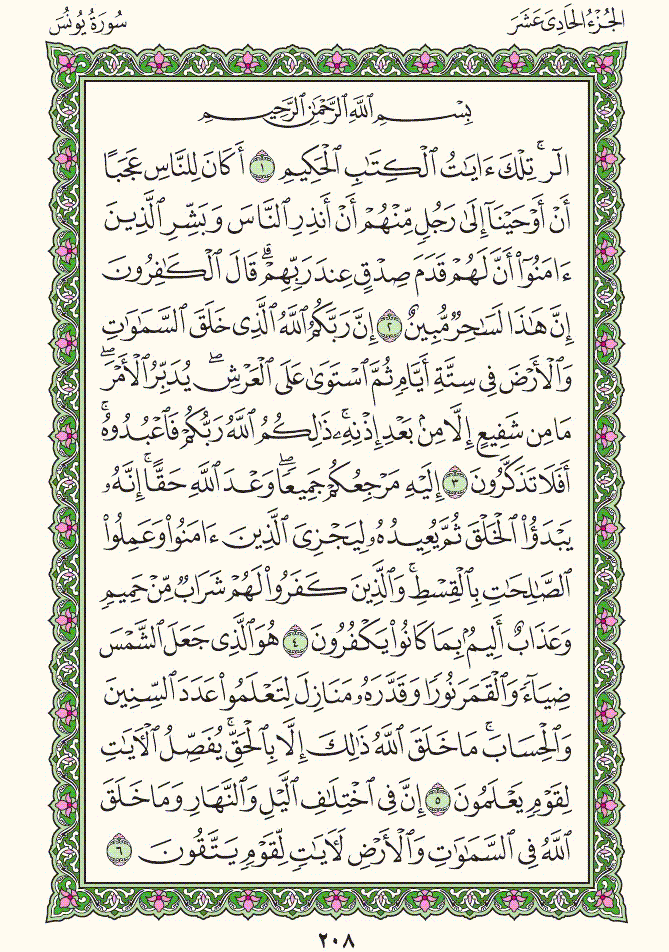 الجُزْءُ الحَادِى عَشَرَ
سُورَةُ يُونُسَ
بِسْمِ ٱللَّهِ ٱلرَّحْمَٰنِ ٱلرَّحِيمِ
الٓرۚ تِلْكَ ءَايَٰتُ ٱلْكِتَٰبِ ٱلْحَكِيمِ ١ أَكَانَ لِلنَّاسِ عَجَبًا
أَنْ أَوْحَيْنَآ إِلَىٰ رَجُلٍ مِّنْهُمْ أَنْ أَنذِرِ ٱلنَّاسَ وَبَشِّرِ ٱلَّذِينَ
ءَامَنُوٓا۟ أَنَّ لَهُمْ قَدَمَ صِدْقٍ عِندَ رَبِّهِمْۗ قَالَ ٱلْكَٰفِرُونَ
إِنَّ هَٰذَا لَسَٰحِرٌ مُّبِينٌ ٢ إِنَّ رَبَّكُمُ ٱللَّهُ ٱلَّذِى خَلَقَ ٱلسَّمَٰوَٰتِ
وَٱلْأَرْضَ فِى سِتَّةِ أَيَّامٍ ثُمَّ ٱسْتَوَىٰ عَلَى ٱلْعَرْشِۖ يُدَبِّرُ ٱلْأَمْرَۖ
مَا مِن شَفِيعٍ إِلَّا مِنۢ بَعْدِ إِذْنِهِۦۚ ذَٰلِكُمُ ٱللَّهُ رَبُّكُمْ فَٱعْبُدُوهُۚ
أَفَلَا تَذَكَّرُونَ ٣ إِلَيْهِ مَرْجِعُكُمْ جَمِيعًاۖ وَعْدَ ٱللَّهِ حَقًّاۚ إِنَّهُۥ
يَبْدَؤُا۟ ٱلْخَلْقَ ثُمَّ يُعِيدُهُۥ لِيَجْزِىَ ٱلَّذِينَ ءَامَنُوا۟ وَعَمِلُوا۟
ٱلصَّٰلِحَٰتِ بِٱلْقِسْطِۚ وَٱلَّذِينَ كَفَرُوا۟ لَهُمْ شَرَابٌ مِّنْ حَمِيمٍ
وَعَذَابٌ أَلِيمٌۢ بِمَا كَانُوا۟ يَكْفُرُونَ ٤ هُوَ ٱلَّذِى جَعَلَ ٱلشَّمْسَ
ضِيَآءً وَٱلْقَمَرَ نُورًا وَقَدَّرَهُۥ مَنَازِلَ لِتَعْلَمُوا۟ عَدَدَ ٱلسِّنِينَ
وَٱلْحِسَابَۚ مَا خَلَقَ ٱللَّهُ ذَٰلِكَ إِلَّا بِٱلْحَقِّۚ يُفَصِّلُ ٱلْـَٔايَٰتِ
لِقَوْمٍ يَعْلَمُونَ ٥ إِنَّ فِى ٱخْتِلَٰفِ ٱلَّيْلِ وَٱلنَّهَارِ وَمَا خَلَقَ
ٱللَّهُ فِى ٱلسَّمَٰوَٰتِ وَٱلْأَرْضِ لَءَايَٰتٍ لِّقَوْمٍ يَتَّقُونَ ٦
٢٠٨